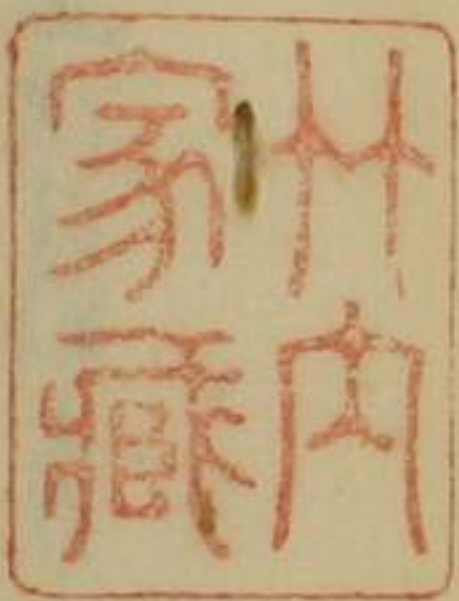 竹内
家藏